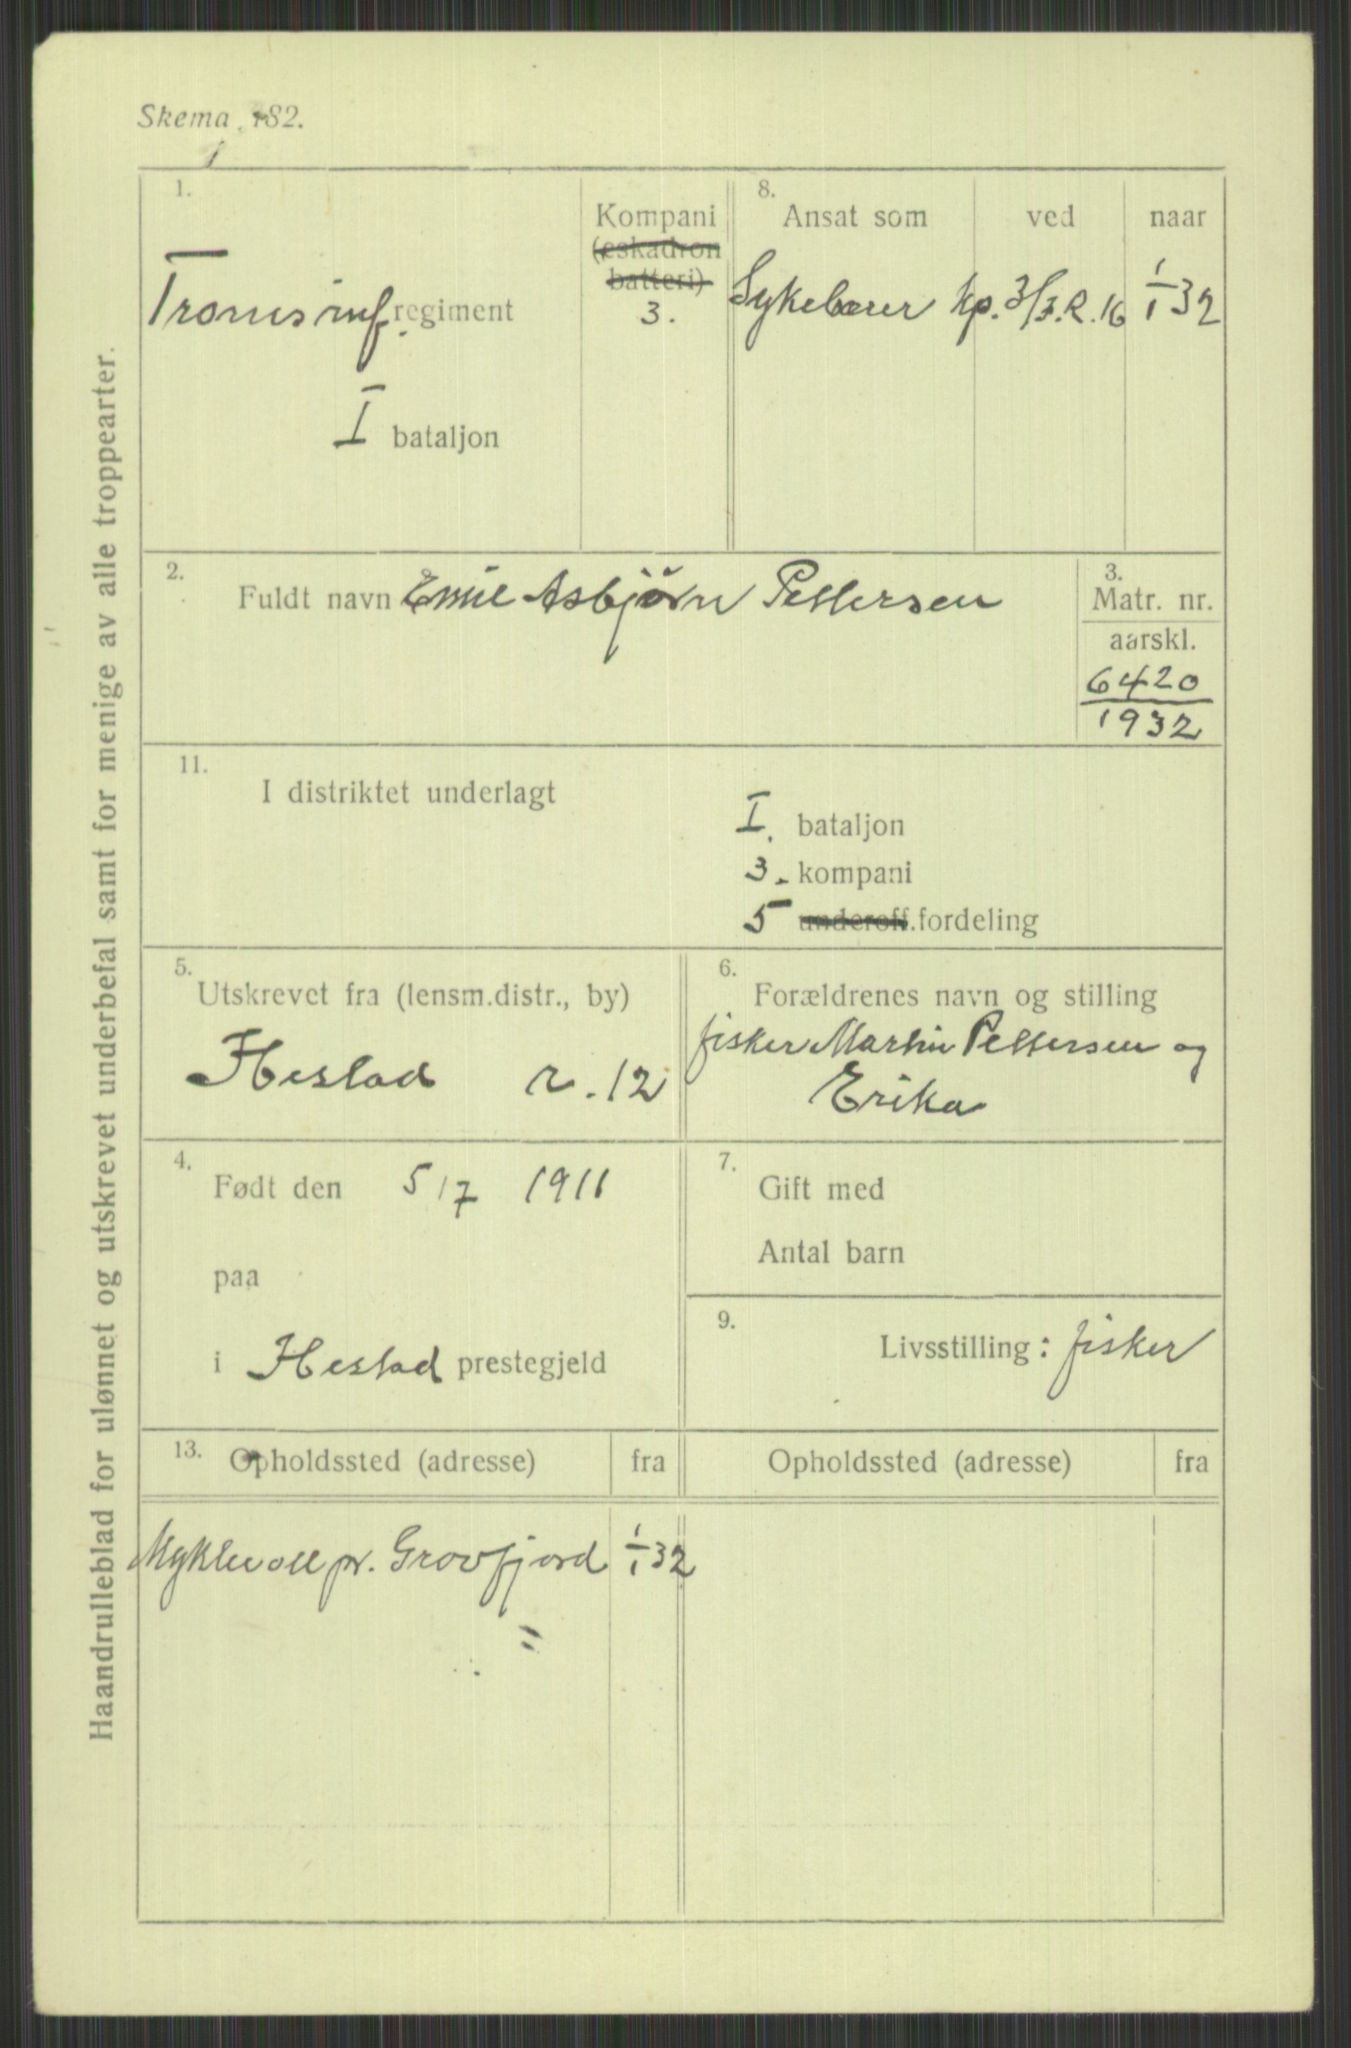 Skema 182.
1
Haandrulleblad for ulønnet og utskrevet underbefal samt for menige av alle troppearter.
1.
Troms inf. regiment
I bataljon
Kompani
(eskadron
batteri)
3.
8.
Ansat som ved naar
Sykebærer kp. 3/I.R.16 1/1 32
2.
Fuldt navn Emil Asbjørn Pettersen
3.
Matr. nr.
aarskl.
6420
1932
11.
I distriktet underlagt
I. bataljon
3. kompani
5 underoff.fordeling
5.
Utskrevet fra (lensm.distr., by)
Ibestad r. 12
6.
Forældrenes navn og stilling
fisker Martin Pettersen og
Erika
4.
Født den 5/7 1911
paa
i Ibestad prestegjeld
7.
Gift med
Antal barn
9.
Livsstilling: fisker
13. Opholdssted (adresse) fra
Opholdssted (adresse) fra
Myklevoll pr. Grovfjord 1/1 32